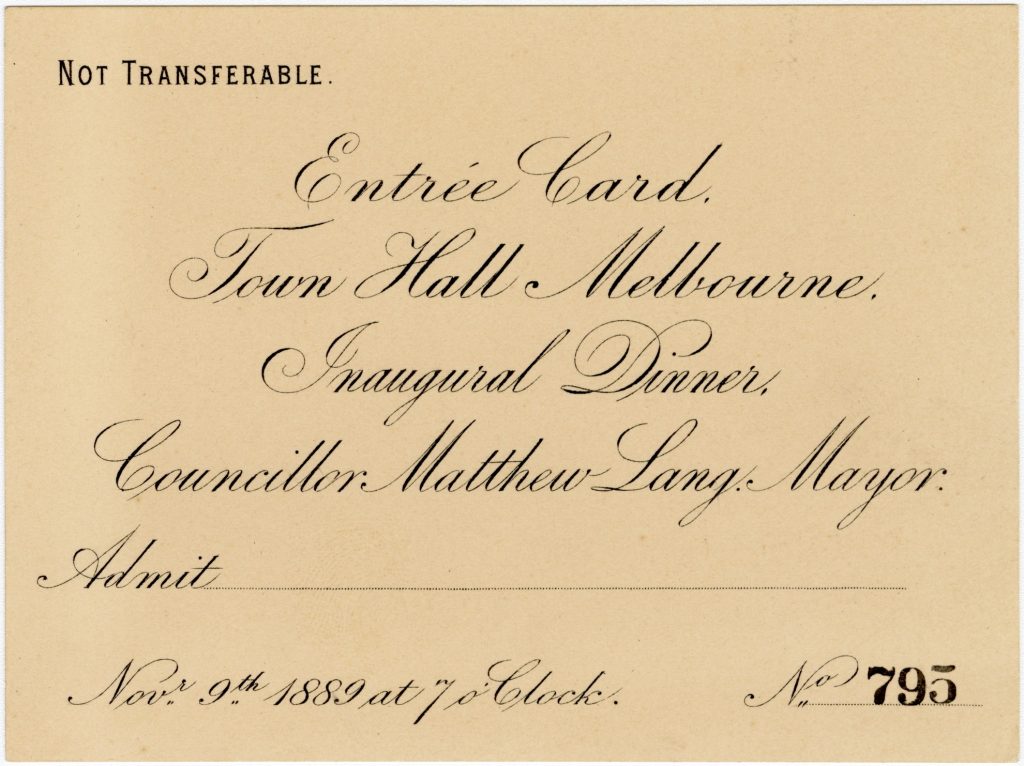 NOT TRANSFERABLE.
Entrée Card.
Town Hall Melbourne.
Inaugural Dinner,
Councillor Matthew Lang. Mayor.
Admit
Novr. 9th 1889 at 7 o'Clock.
No 795